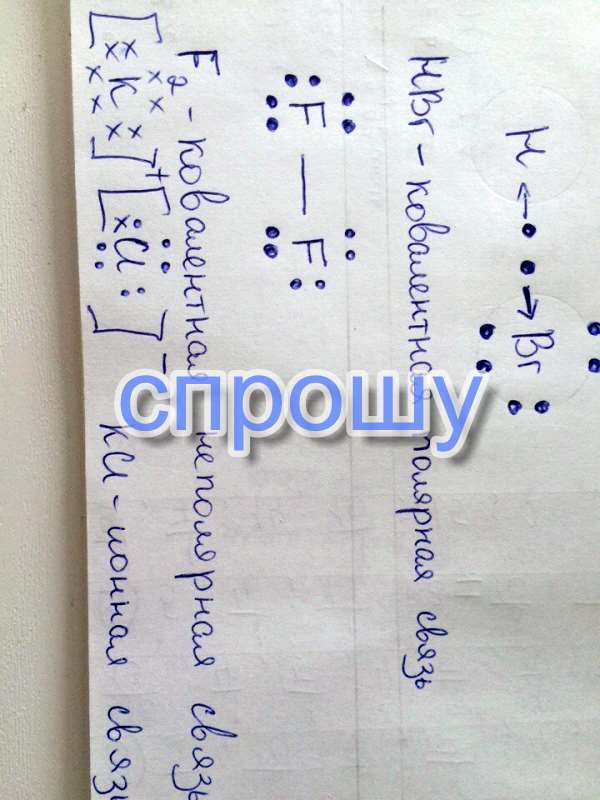 H ← • • → Br
HBr - ковалентная полярная связь
F — F
F₂ - ковалентная неполярная связь
[K]⁺ [Cl]⁻ KCl - ионная связь
спрошу